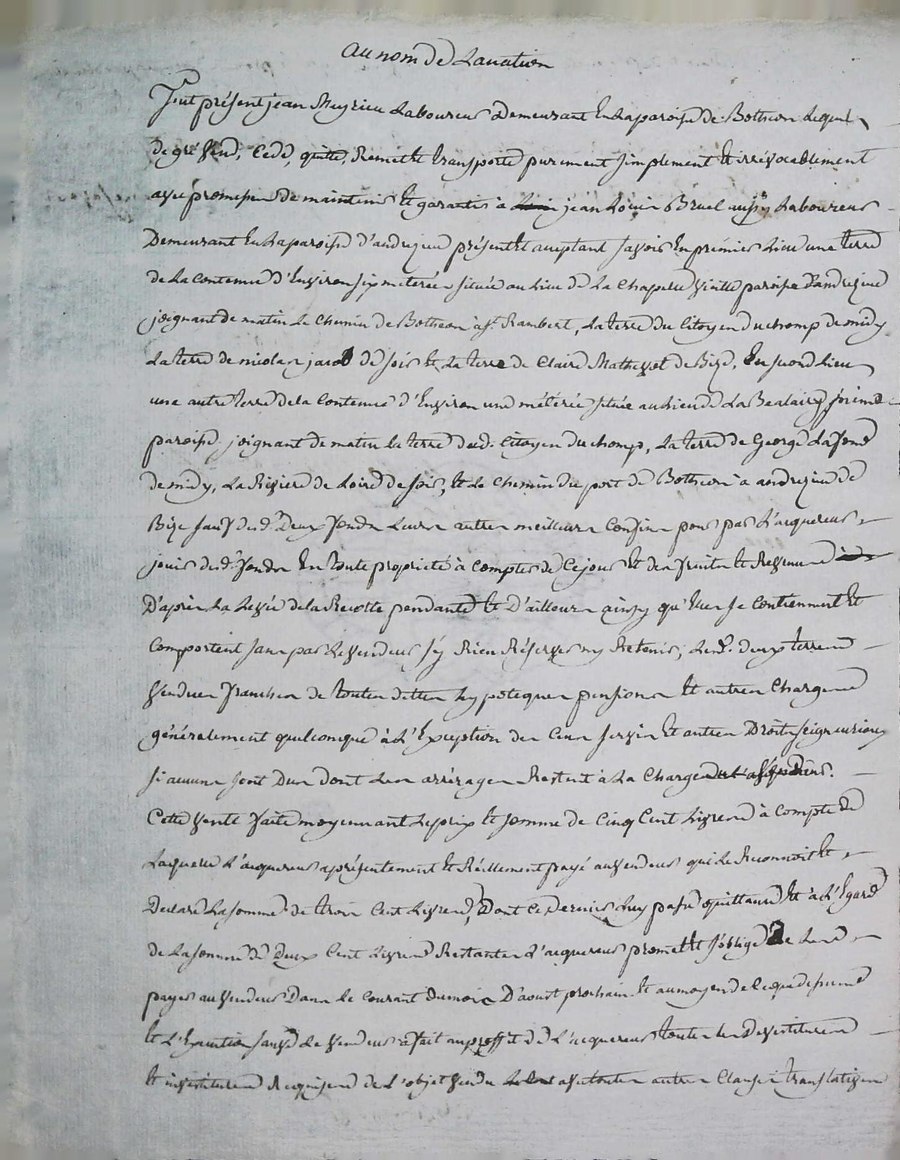 au nom de La nation
Fut présent jean Meyrieu Laboureur Demeurant En La paroisse de Botheon Lequel
de gré Vend, Cedde, quitte, Remet Et transporte purement simplement Et irrévocablement
avec promesse de maintenir Et garantir à jean Louis Bruel aussy Laboureur
Demeurant En La paroisse d'andrezieu présent Et acceptant savoir En prémier Lieu une terre
de La Contenue d'Environ six meterées située au Lieu de La Chapelle Vieille paroisse d'andrezieu
joignant de matin Le Chemin de Botheon à st Rambert, La terre du Citoyen duchomp de midy
La terre de nicolas jacob de soir Et La terre de Claire Mathevet de Bize, En second Lieu
une autre terre de la Contenue d'Environ une méterée située au Lieu de La
paroisse joignant de matin la terre dud. Citoyen duchomp, La terre de George Lafond
de midy, La Riviere de Loire de soir, Et Le Chemin du port de Botheon a andrezieu de
Bize sauf desd. Deux fonds Leurs autres meilleurs Confins pour par L'acquereur
jouir desd. fonds En toute proprieté à Compter de Ce jour Et des fruits Et Revenus
D'après La Levée de la Recolte pendante Et D'ailleurs ainsy qu'Elles se Contiennent Et
Comportent sans par Le Vendeur s'y Rien Réserver ny Retenir, Lesd. deux terres
Vendues franches de toutes dettes hypoteques pensions Et autres Charges
généralement quelconque à L'Exception des Cens servis Et autres Droits seigneuriaux
si aucuns sont Dus dont Les arrérages Restent à La Charge
Cette Vente faite moyennant Le prix Et somme de Cinq Cent Livres à Compte de
Laquelle L'acquereur a présentement Et Réellement payé au Vendeur qui Le Reconnoit Et
Declare La somme de trois Cent Livres, Dont Ce Dernier Luy passe quittance Et à L'Egard
de La somme de Deux Cent Livres Restantes L'acquereur promet Et s'oblige de La
payer au Vendeur Dans Le Courant du mois D'aoust prochain Et au moyen de Ce que dessus
Et L'Execution sauve Le Vendeur a fait au proffit de L'acquereur toutes Les Devestitures
Et investitures Requises de L'objet Vendu avec toutes autres Clauses translatives